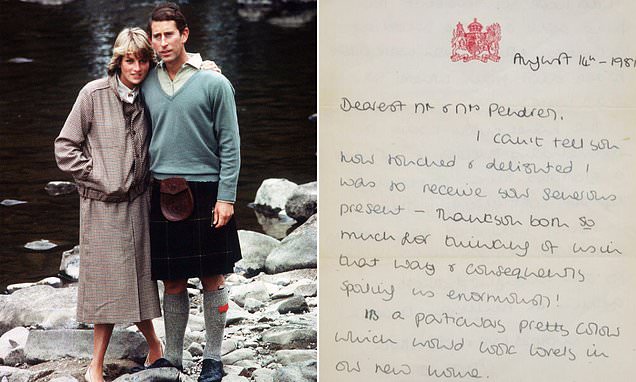 August 14th - 1981
Dearest Mr & Mrs Pendrey,
I can't tell you
how touched & delighted I
was to receive your generous
present - Thankyou both so
much for thinking of us in
that way & consequently
spoiling us enormously!
It's a particularly pretty colour
which would look lovely in
our new home.